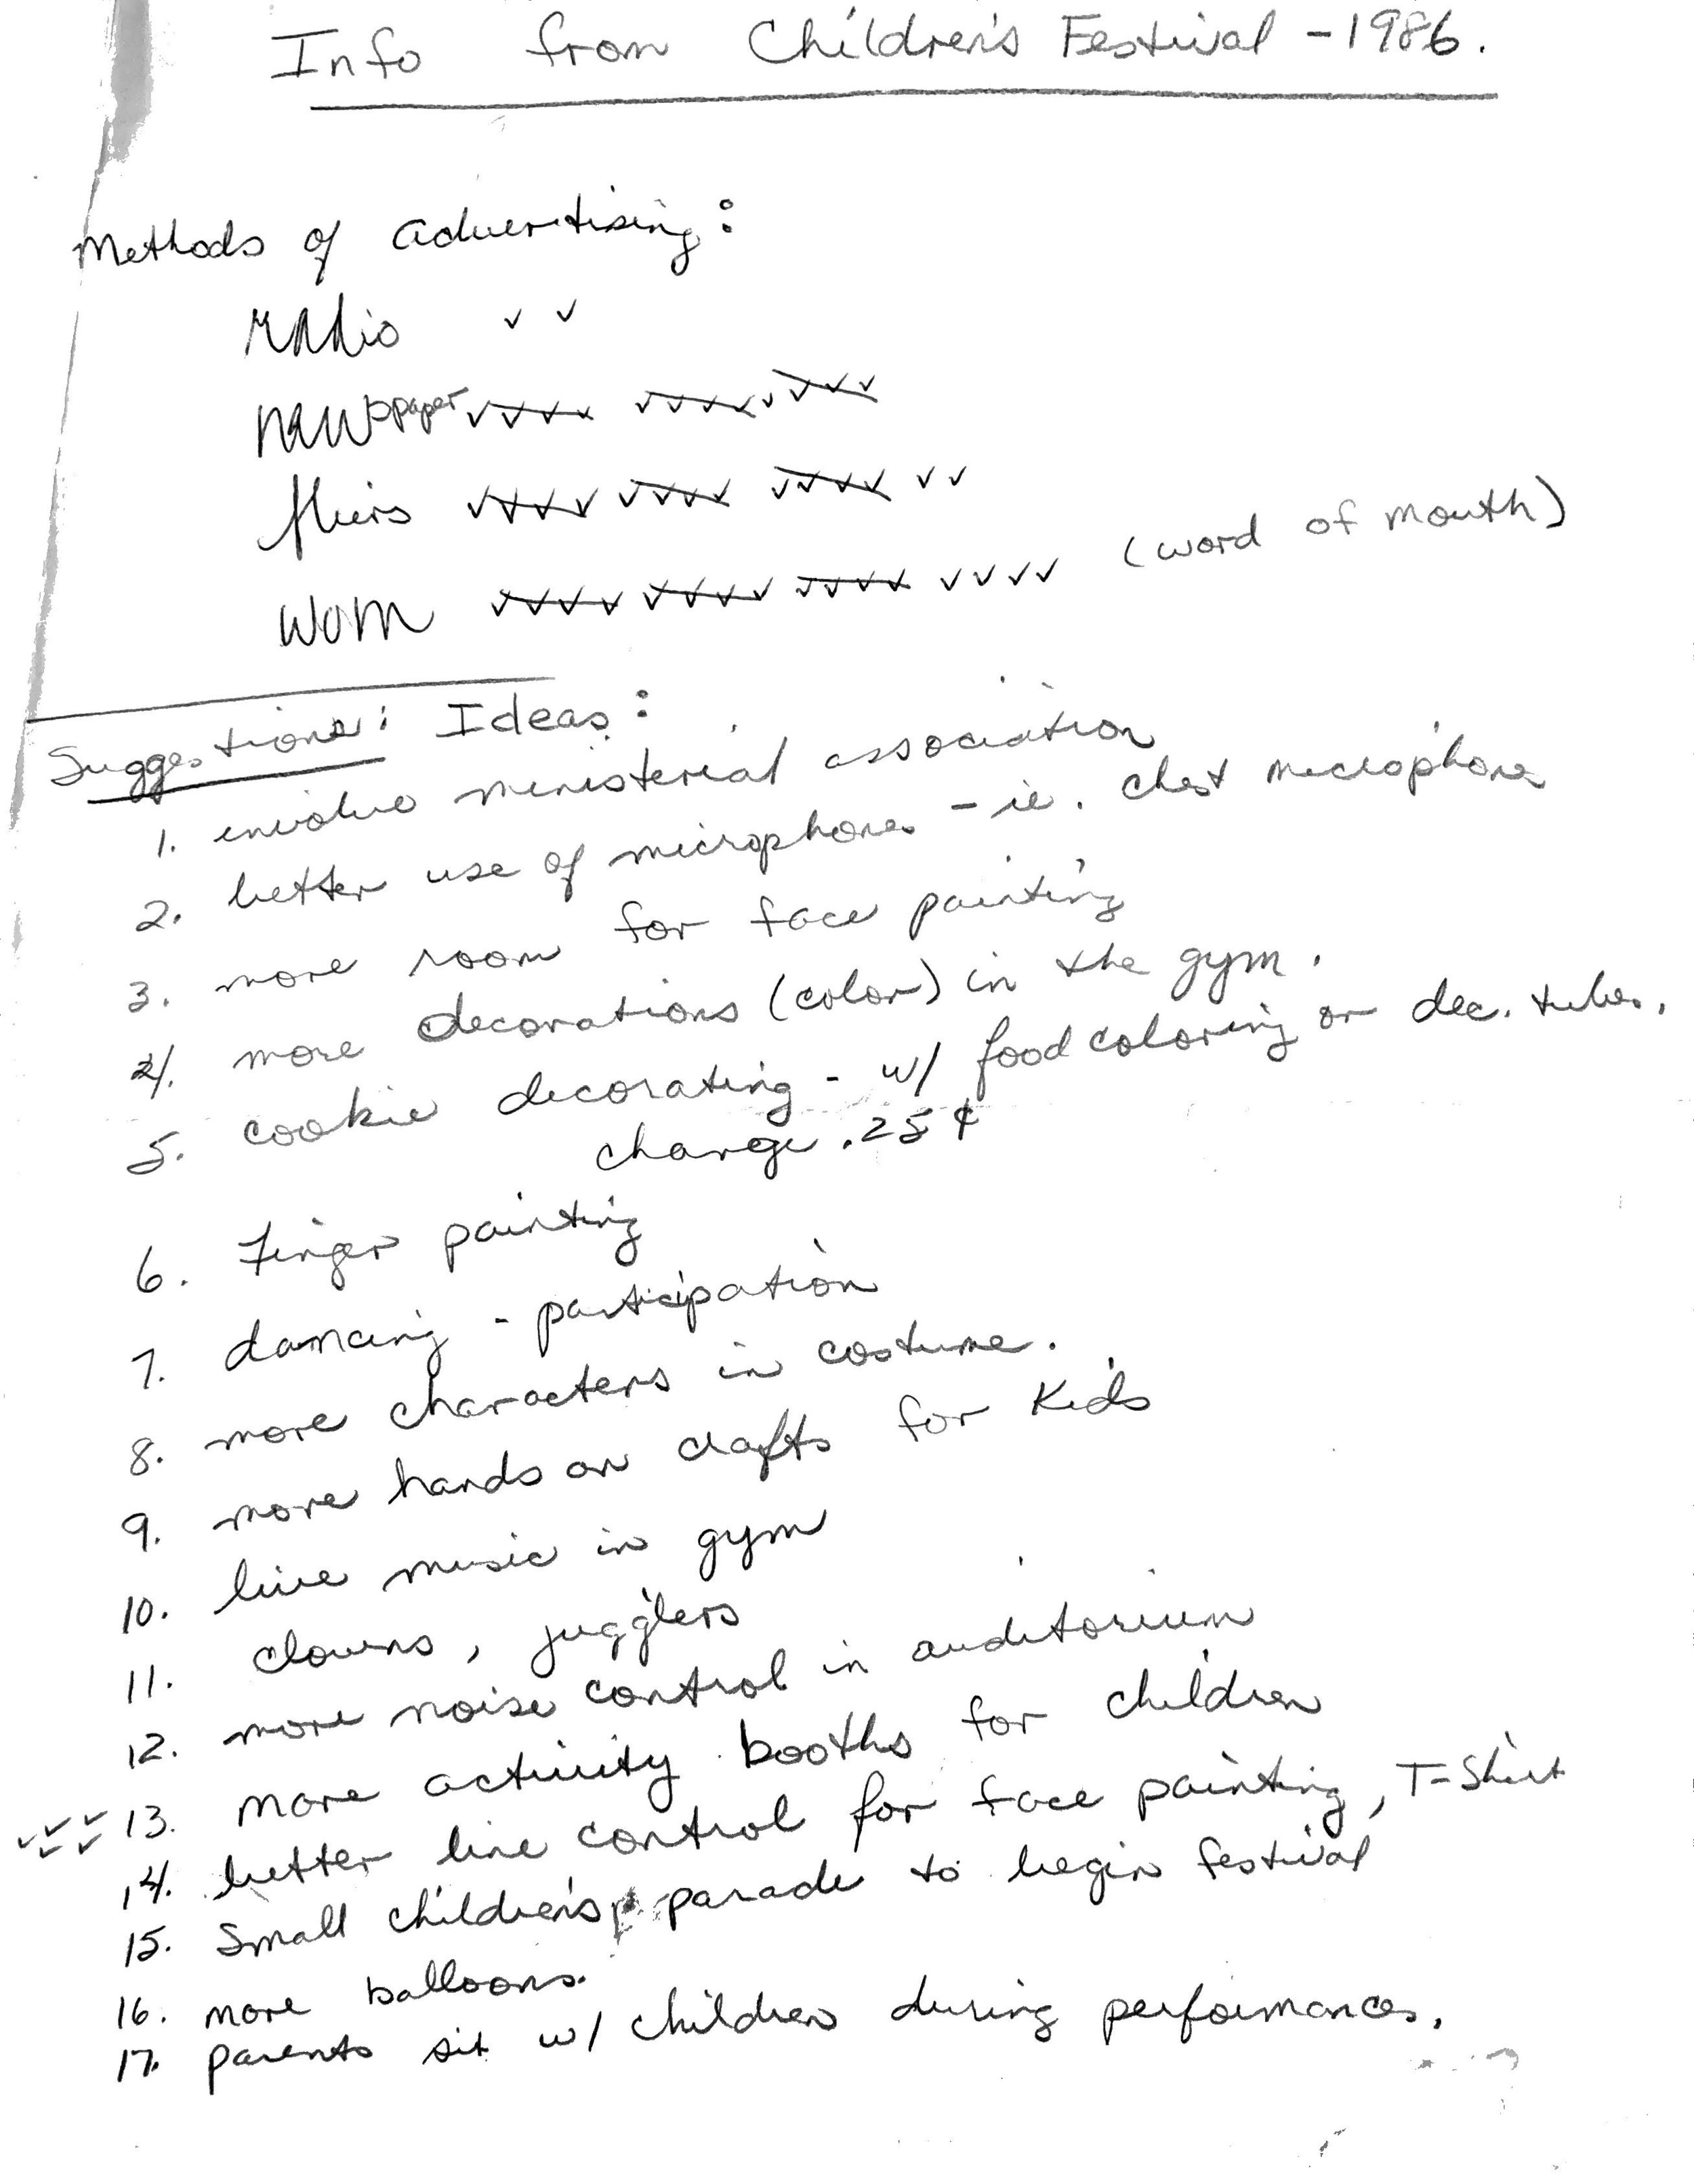 Info from Children's Festival - 1986.
Methods of advertising:
radio ✓ ✓
newspaper ✓✓✓✓ ✓✓✓✓ ✓✓✓✓
fliers ✓✓✓✓ ✓✓✓✓ ✓✓✓✓ ✓✓
WOM ✓✓✓✓ ✓✓✓✓ ✓✓✓✓ ✓✓✓✓ (word of mouth)
Suggestions: Ideas:
1. involve ministerial association
2. better use of microphones - ie. chest microphones
3. more room for face painting
4. more decorations (color) in the gym.
5. cookie decorating - w/ food coloring or dec. tubes.
charge .25¢
6. Finger painting
7. dancing - participation
8. more characters in costume.
9. more hands on crafts for Kids
10. live music in gym
11. clowns, jugglers
12. more noise control in auditorium
✓✓✓✓✓ 13. more activity booths for children
14. better line control for face painting, T-Shirt
15. Small children's parade to begin festival
16. more balloons.
17. parents sit w/ children during performances.